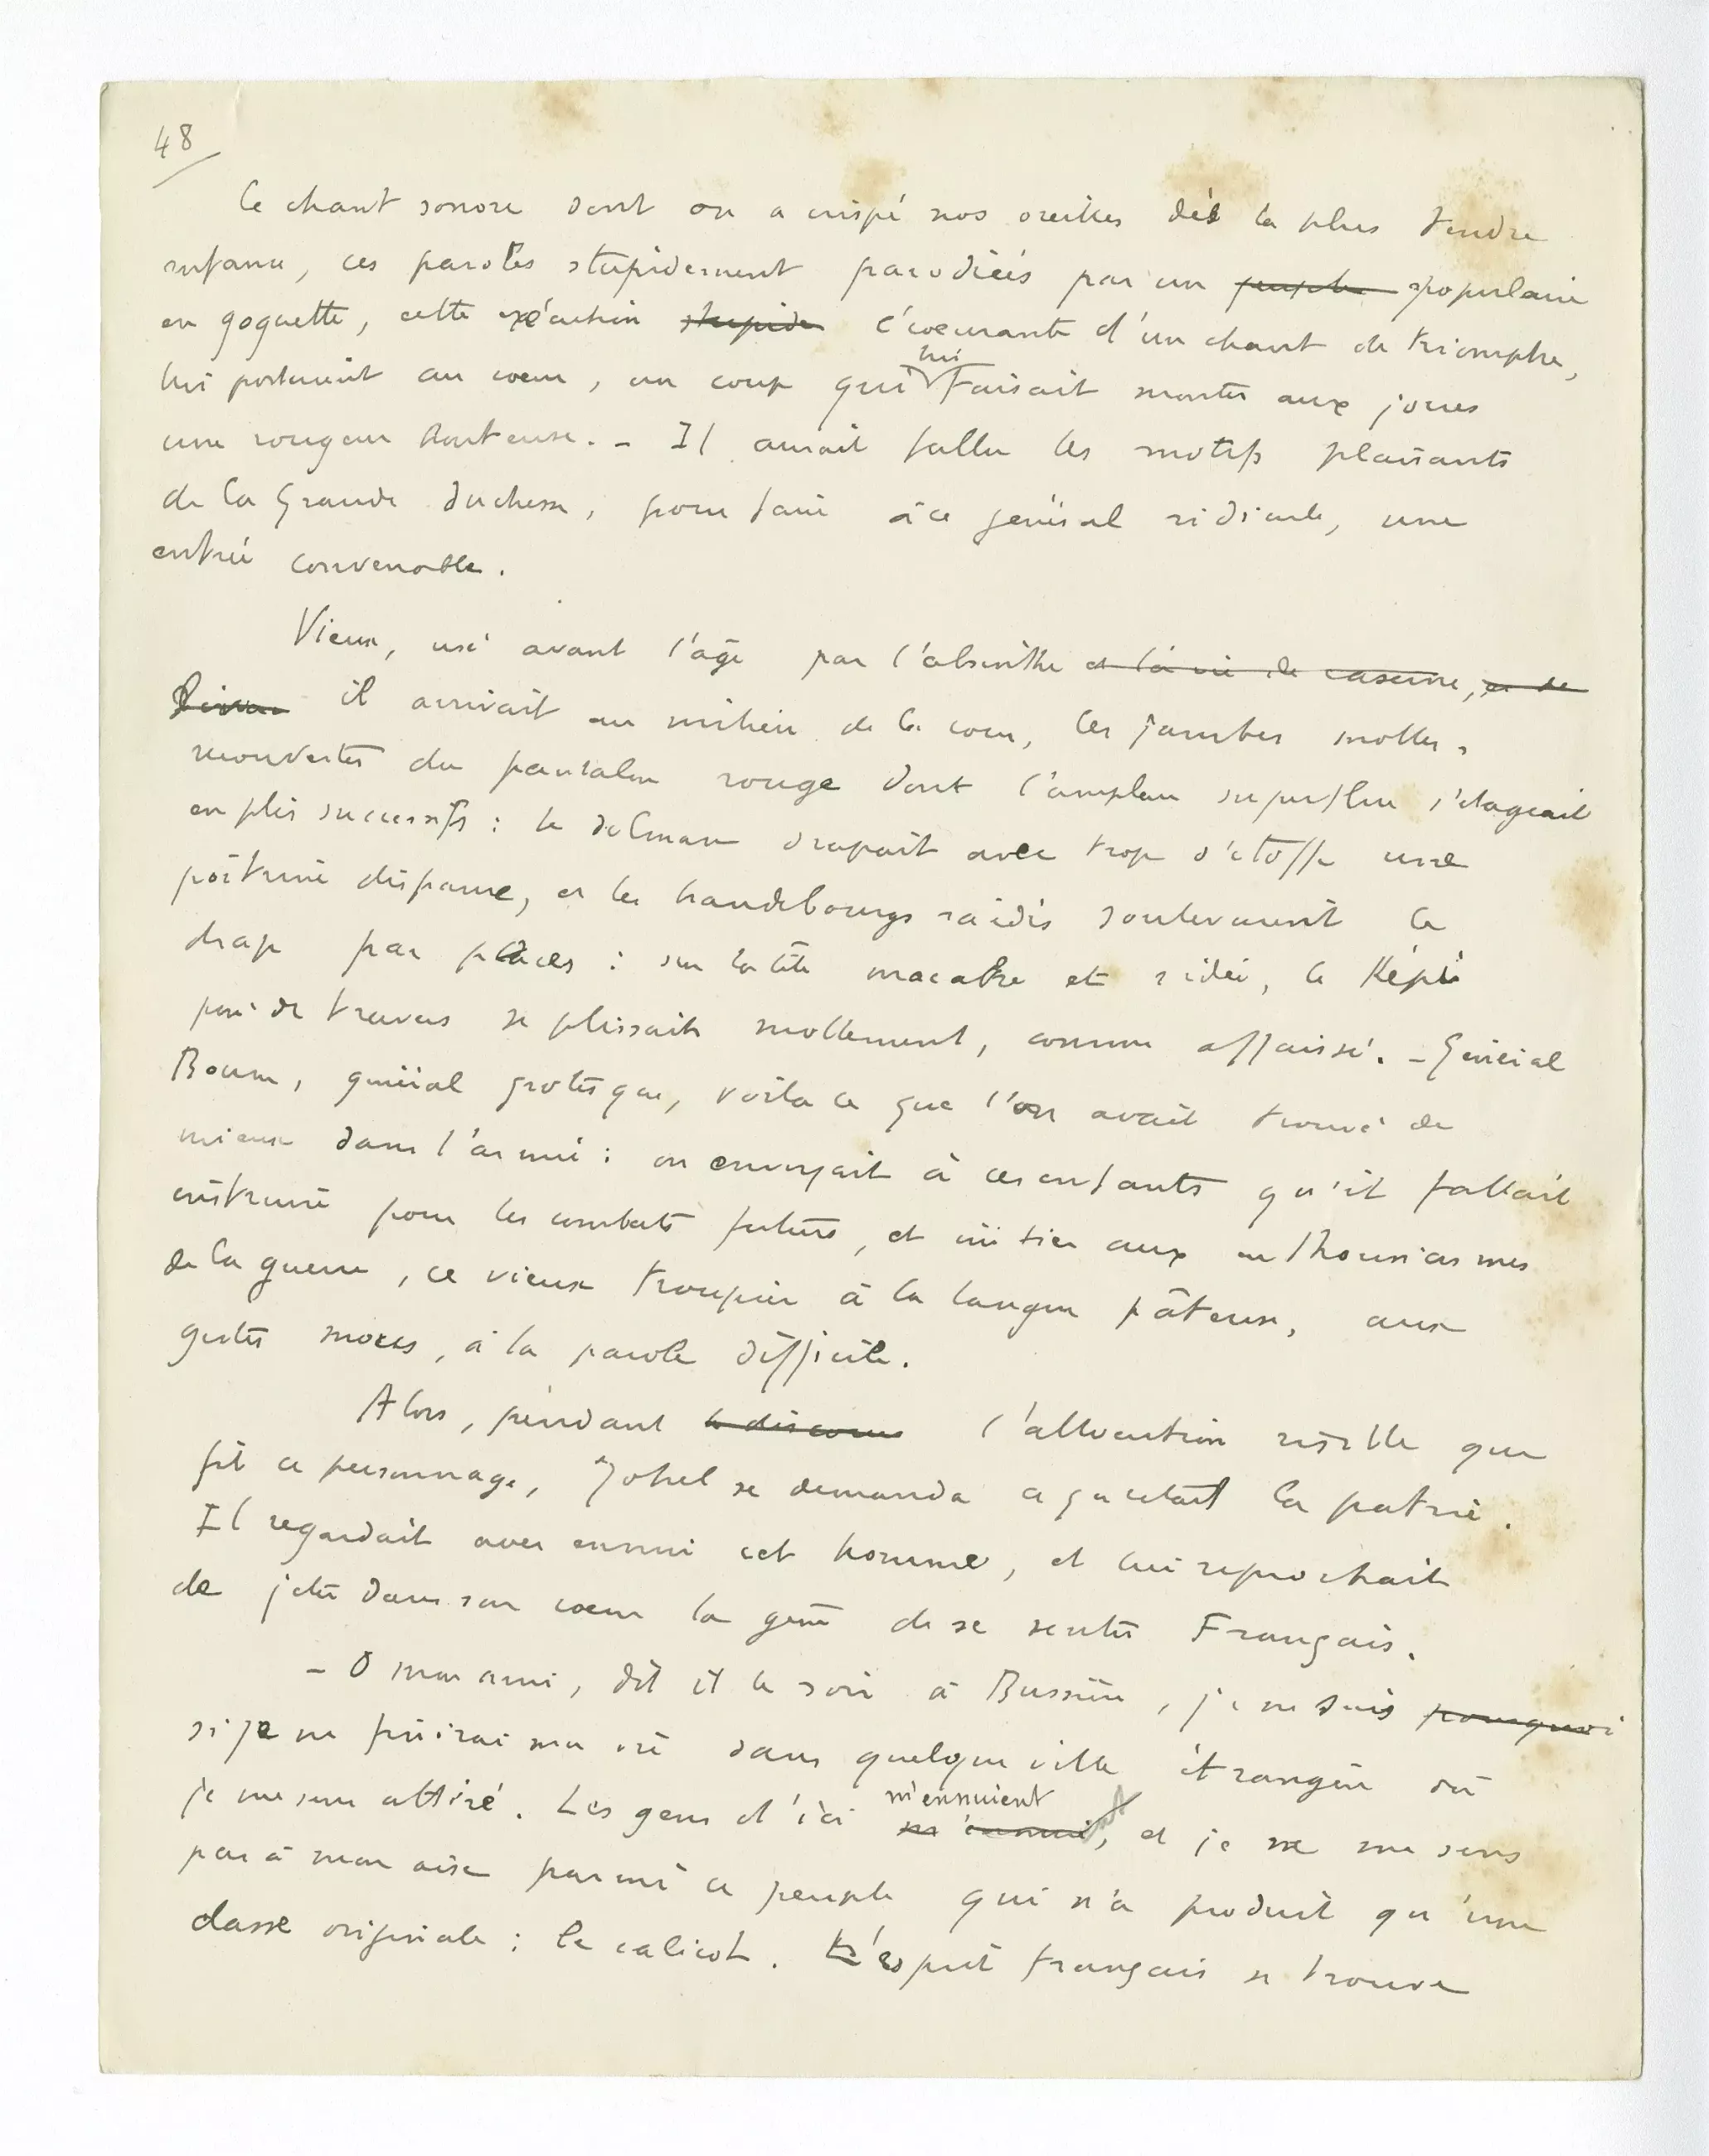 48
Ce chant sonore dont on a crispé nos oreilles dès la plus tendre
enfance, ces paroles stupidement parodiées par un peuple populaire
en goguette, cette exécution stupide écœurante d'un chant de triomphe,
lui portaient au cœur, un coup qui lui faisait monter aux joues
une rougeur honteuse. - Il aurait fallu les motifs plaisants
de la Grande duchesse, pour faire à ce général ridicule, une
entrée convenable.
Vieux, usé avant l'âge par l'absinthe et la vie de caserne, et se
il arrivait au milieu de la cour, les jambes molles,
recouvertes du pantalon rouge dont l'ampleur superflue s'étageait
en plis successifs : le dolman drapait avec trop d'étoffe une
poitrine disparue, et les brandebourgs raidis soulevaient le
drap par places : sur la tête macabre et ridée, le Képi
posé de travers se plissait mollement, comme affaissé. - Général
Boum, général grotesque, voilà ce que l'on avait trouvé de
mieux dans l'armée : on envoyait à ces enfants qu'il fallait
instruire pour les combats futurs, et initier aux enthousiasmes
de la guerre, ce vieux troupier à la langue pâteuse, aux
gestes mous, à la parole difficile.
Alors, pendant le discours l'allocution risible que
fit ce personnage, Johel se demanda ce qu'était la patrie.
Il regardait avec ennui cet homme, et lui reprochait
de jeter dans son cœur la gêne de se sentir Français.
- O mon ami, dit il le soir à Bussière, je ne sais pourquoi
si je ne finirai ma vie dans quelque ville étrangère où
je me sens attiré. Les gens d'ici m'ennuient, et je ne me sens
pas à mon aise parmi ce peuple qui n'a produit qu'une
classe originale : le calicot. L'esprit français se trouve